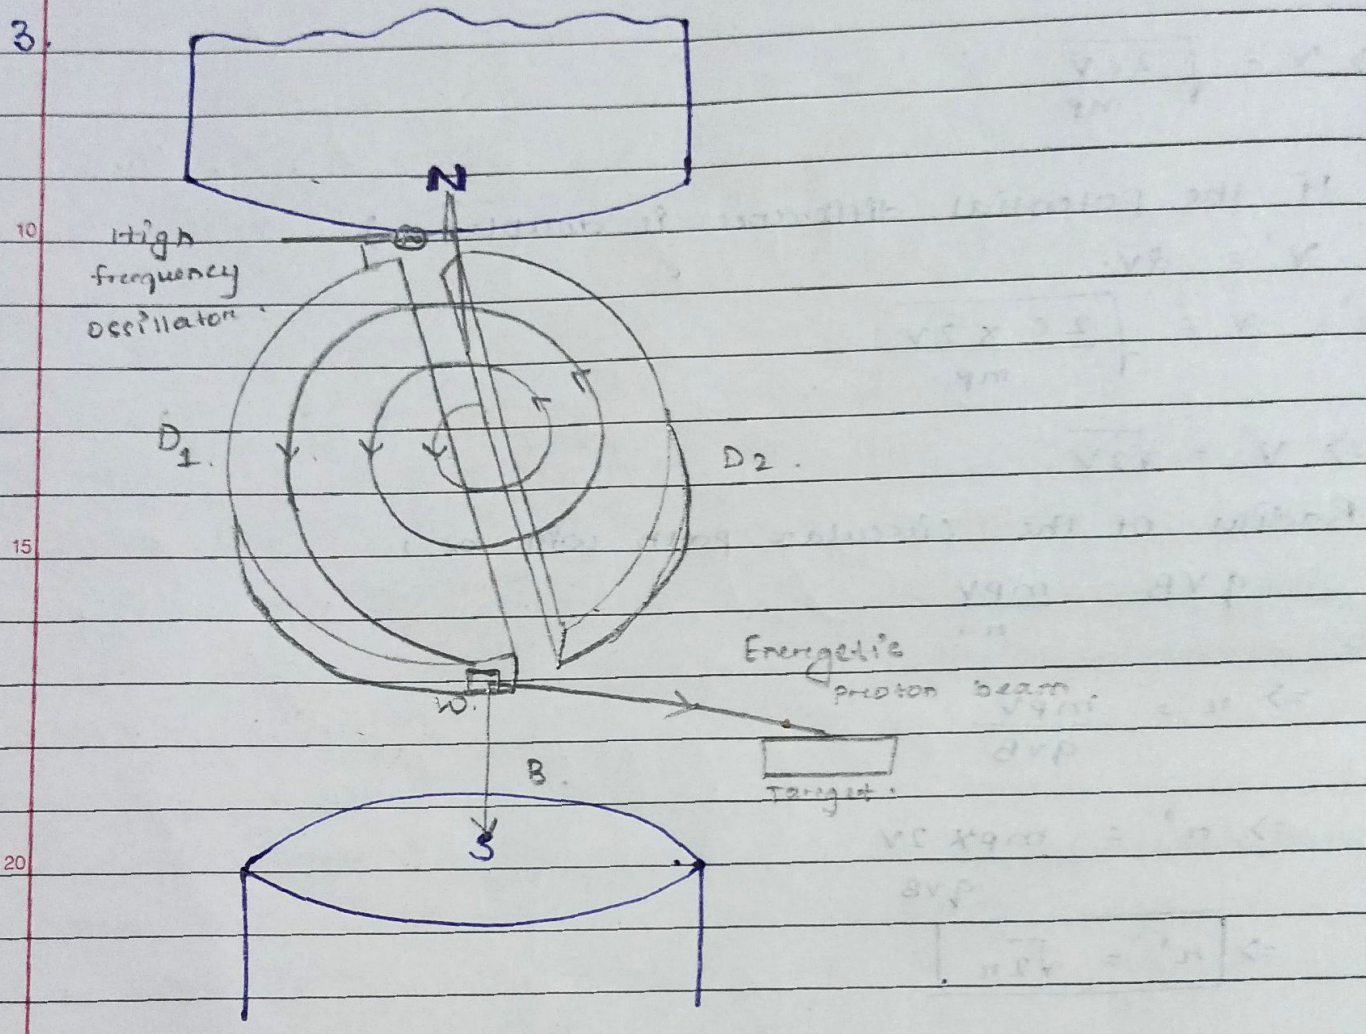 3.
N
10
High
frequency
ossillator.
D1.
D2.
15
Energetic
proton beam.
W.
B.
Target.
S
20